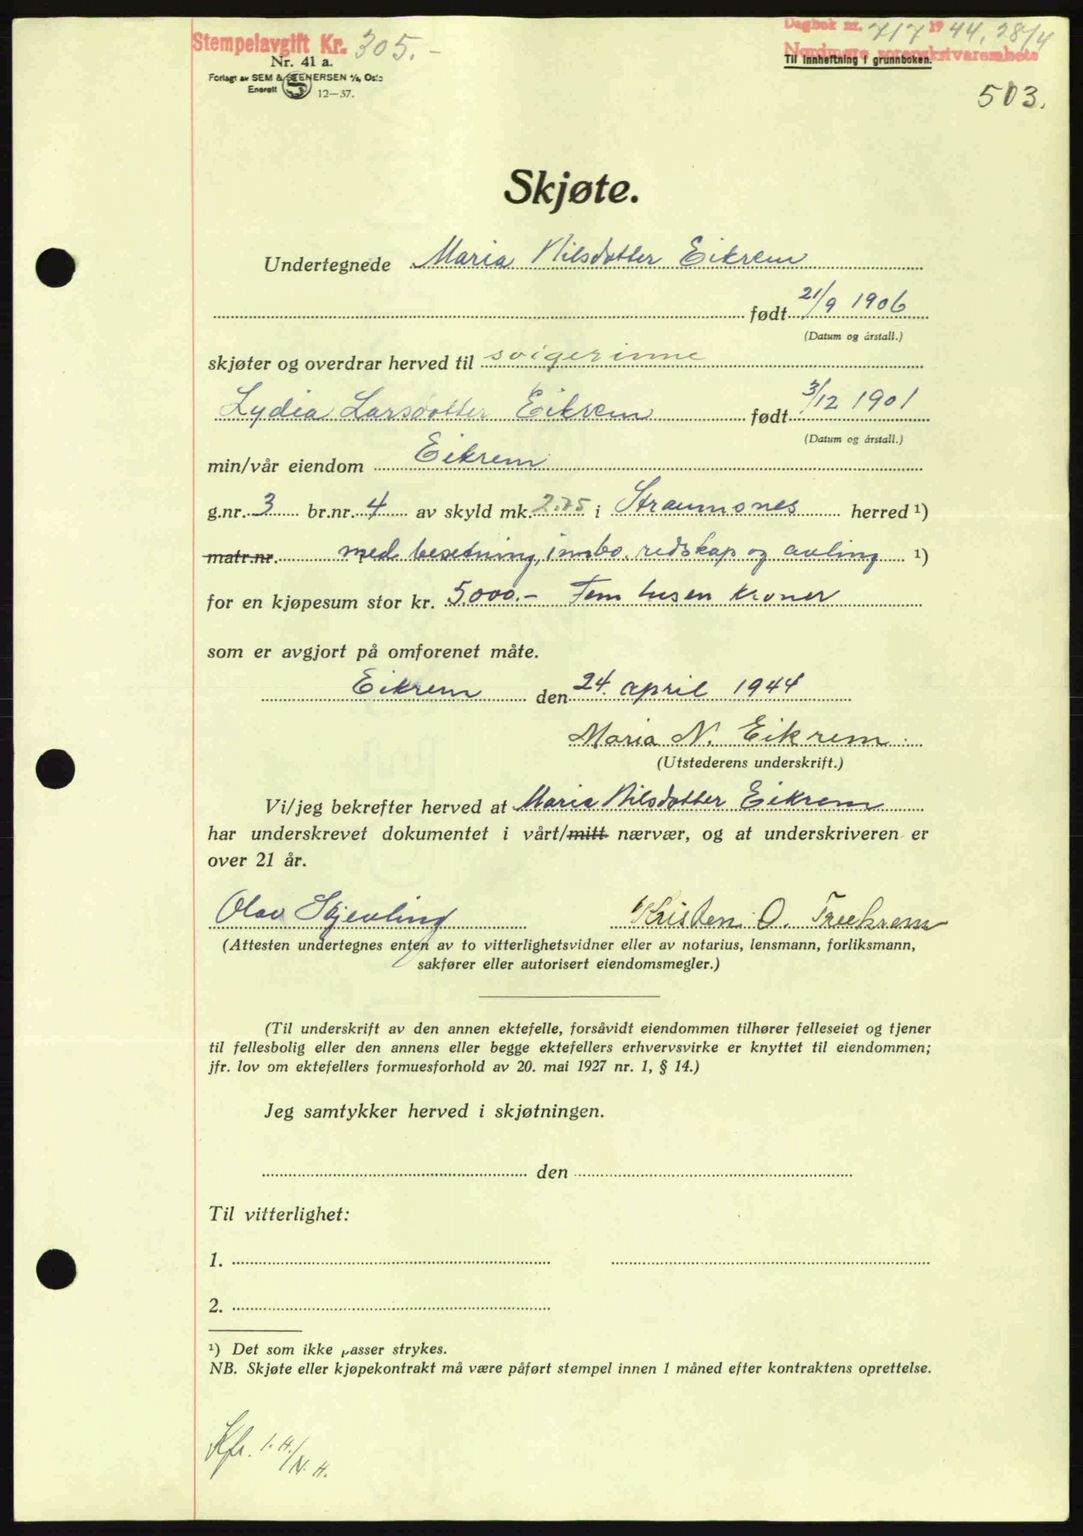 Stempelavgift Kr. 305.-
Dagbok nr. 717 1944, 28/4
Nordmøre sorenskriverembete
Nr. 41 a.
Til innheftning i grunnboken.
Forlagt av SEM & STENERSEN A/S, Oslo
Enerett S 12—37.
503.
Skjøte.
Undertegnede Maria Nilsdotter Eikrem
født 21/9 1906
(Datum og årstall.)
skjøter og overdrar herved til svigerinne
Lydia Larsdotter Eikrem født 3/12 1901
(Datum og årstall.)
min/vår eiendom Eikrem
g.nr. 3 br.nr. 4 av skyld mk. 2.75 i Straumsnes herred ¹)
matr.nr. med besetning, innbo, redskap og avling ¹)
for en kjøpesum stor kr. 5000.- Fem tusen kroner
som er avgjort på omforenet måte.
Eikrem den 24. april 1944
Maria N. Eikrem.
(Utstederens underskrift.)
Vi/jeg bekrefter herved at Maria Nilsdotter Eikrem
har underskrevet dokumentet i vårt/mitt nærvær, og at underskriveren er
over 21 år.
Olav Skjevling Kristen O. Treekrem
(Attesten undertegnes enten av to vitterlighetsvidner eller av notarius, lensmann, forliksmann,
sakfører eller autorisert eiendomsmegler.)
(Til underskrift av den annen ektefelle, forsåvidt eiendommen tilhører felleseiet og tjener
til fellesbolig eller den annens eller begge ektefellers erhvervsvirke er knyttet til eiendommen;
jfr. lov om ektefellers formuesforhold av 20. mai 1927 nr. 1, § 14.)
Jeg samtykker herved i skjøtningen.
den
Til vitterlighet:
1.
2.
¹) Det som ikke passer strykes.
NB. Skjøte eller kjøpekontrakt må være påført stempel innen 1 måned efter kontraktens oprettelse.
Kfr. I.H./N.H.